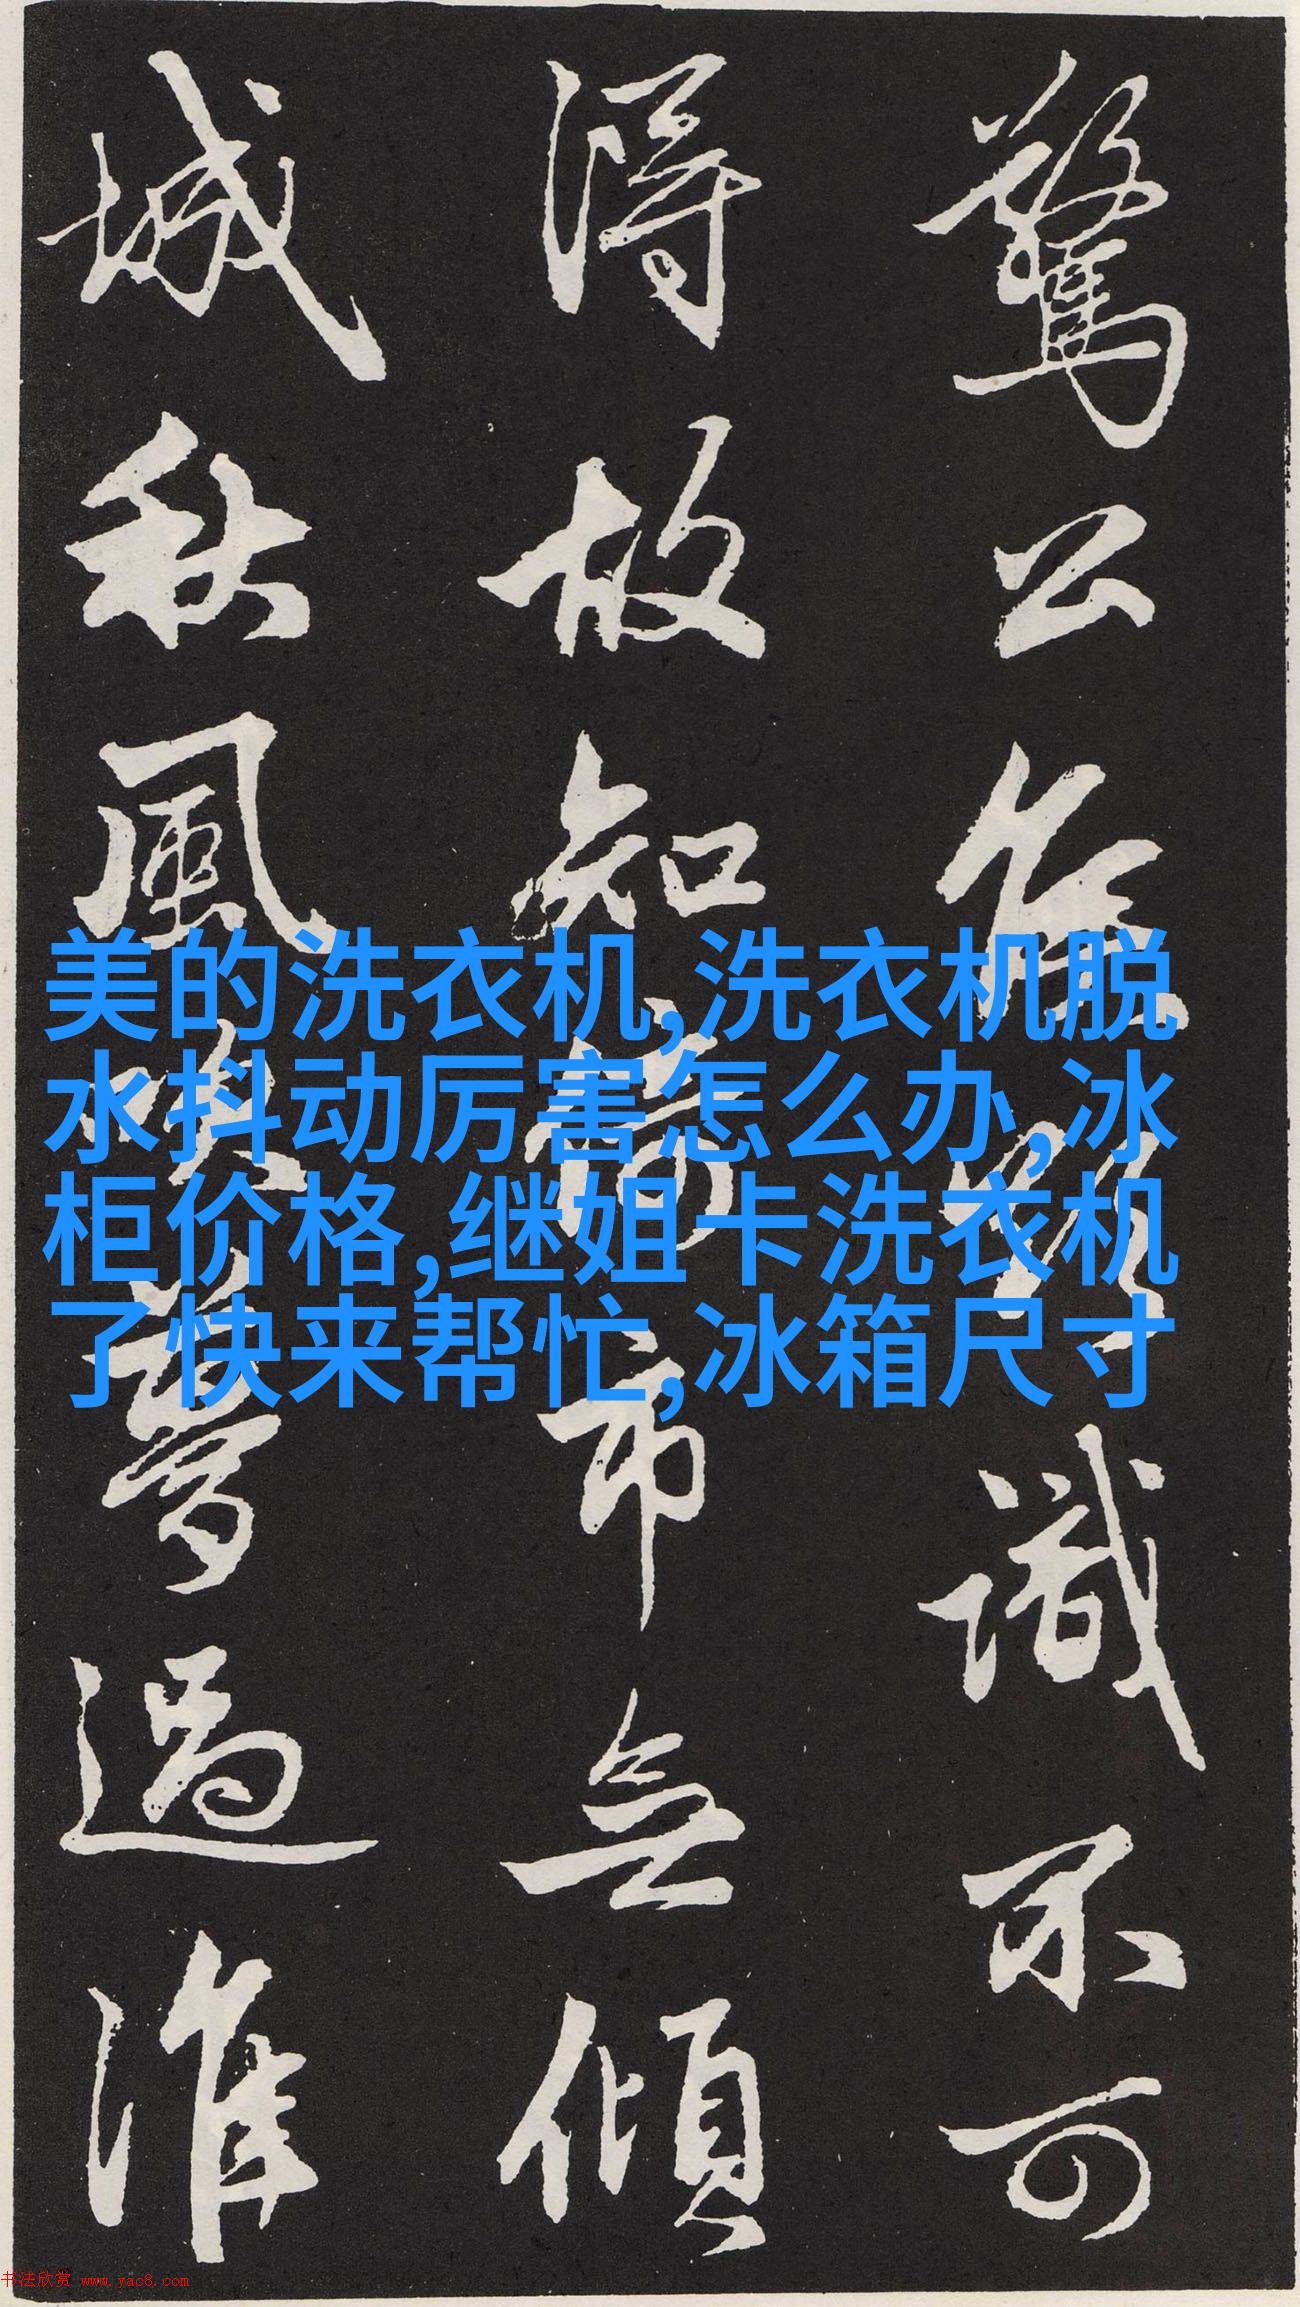 驚公
識不可
得故知
市無傾
城秋風
夢過淮
美的洗衣机,洗衣机脱
水抖动厉害怎么办,冰
柜价格,继姐卡洗衣机
了快来帮忙,冰箱尺寸
书法欣赏 www.yac8.com